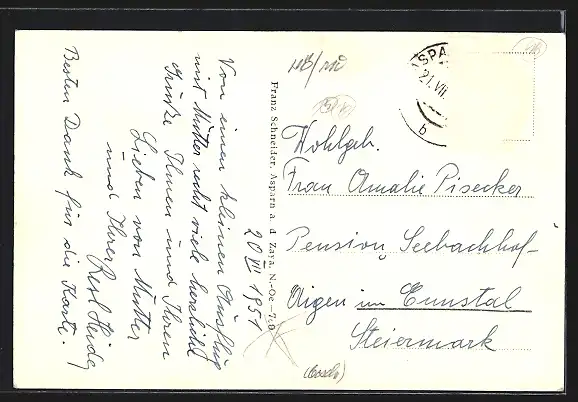 20 VII 1951
Von einem kleinen Ausflug
mit Mutter recht viele herzliche
Grüße Ihnen und Ihren
Lieben von Mutter
und Ihrer
Resl Heidy
Besten Dank für die Karte.
Franz Schneider, Asparn a. d. Zaya, N.-Oe.
ASPA
21.VII
b
Wohlgeb.
Frau Amalie Pisecker
Pension Seebachhof
Aigen im Ennstal
Steiermark